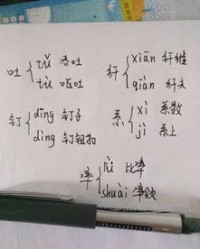 吐 tǔ 吞吐 tù 呕吐
纤 xiān 纤维 qiàn 纤夫
钉 dīng 钉子 dìng 钉钮扣
系 xì 系数 jì 系上
率 lǜ 比率 shuài 率领